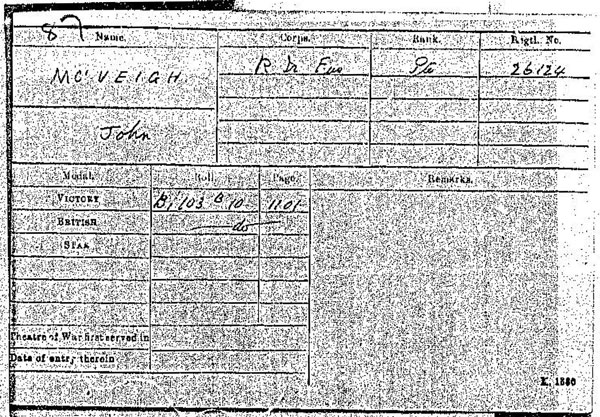 87
Name. Corps. Rank. Rigtl. No.
McVEIGH R Ir Fus Pte 26124
John
Medal. Roll. Page.
Remarks.
VICTORY B/103 B10 1101
BRITISH —do—
STAR
Theatre of War first served in
Date of entry therein
K. 1380